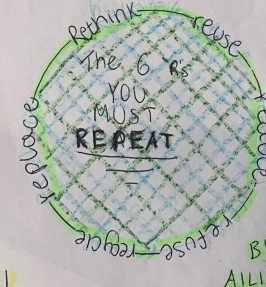 Rethink
reuse
reduce
refuse
recycle
replace
The 6 Rs
YOU
MUST
REPEAT
AILI